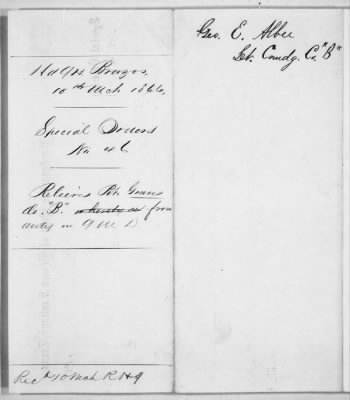 Hd Qrs Brazos,
10th Mch 1866,
Special Orders
No 46
Relieves Pvt Graves
Co. "B." a hereby is from
duty in Q M D
Rec'd 10 Mch R H Q
Geo. E. Albee
Lt. Comdg. Co. "B"